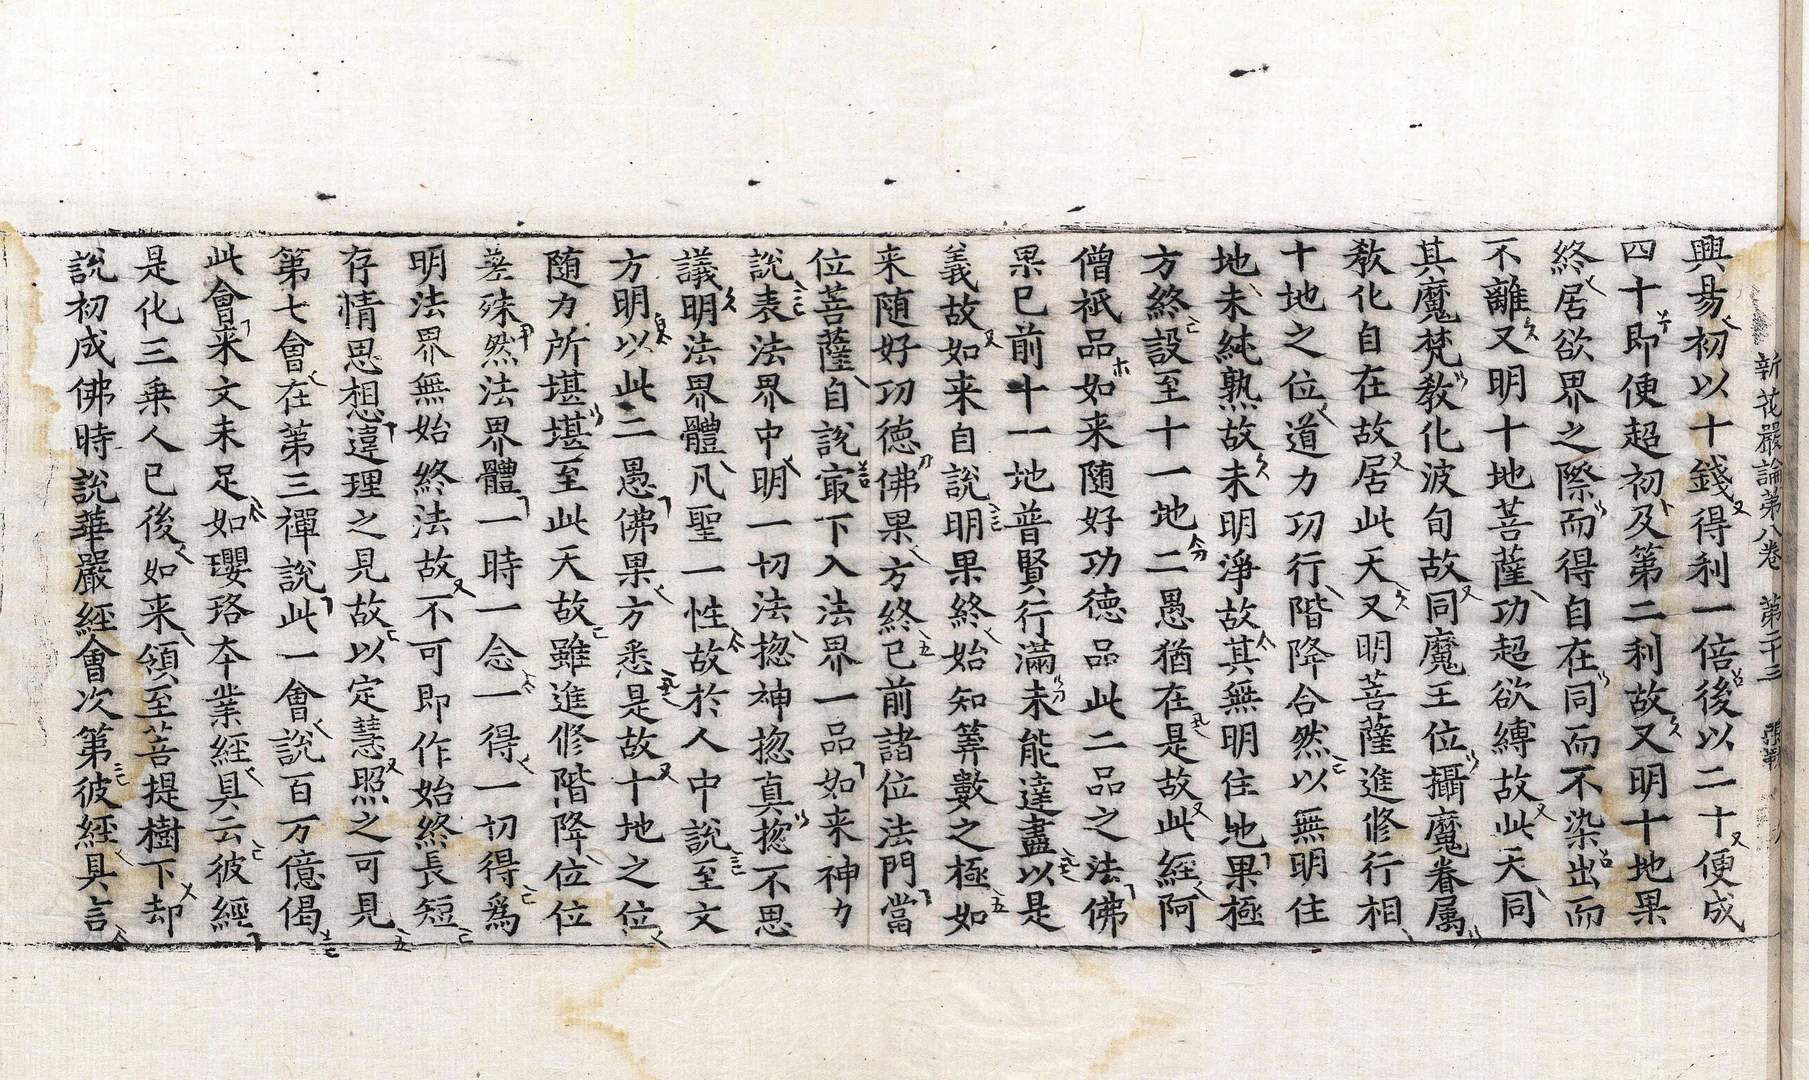 新花嚴論第八卷　第二十三
興易初以十錢得利一倍後以二十便成
四十即便超初及第二利故又明十地果
終居欲界之際而得自在同而不染出而
不離又明十地菩薩功超欲縛故此天同
其魔梵教化波旬故同魔王位攝魔眷属
教化自在故居此天又明菩薩進修行相
十地之位道力功行階降合然以無明住
地未純熟故未明淨故其無明住地果極
方終設至十一地二愚猶在是故此經阿
僧祇品如来随好功德品此二品之法佛
果已前十一地普賢行滿未能達盡以是
義故如来自說明果終始知筭數之極如
来随好功德佛果方終已前諸位法門當
位菩薩自說㝡下入法界一品如来神力
說表法界中明一切法揔神揔真揔不思
議明法界體凡聖一性故於人中說至文
方明以此二愚佛果方悉是故十地之位
随力所堪堪至此天故雖進修階降位位
差殊然法界體一時一念一得一切得為
明法界無始終法故不可即作始終長短
存情思想違理之見故以定慧照之可見
第七會在第三禪說此一會說百万億偈
此會来文未足如瓔珞本業經具云彼經
是化三乗人已後如来領至菩提樹下却
說初成佛時說華嚴經會次第彼經具言